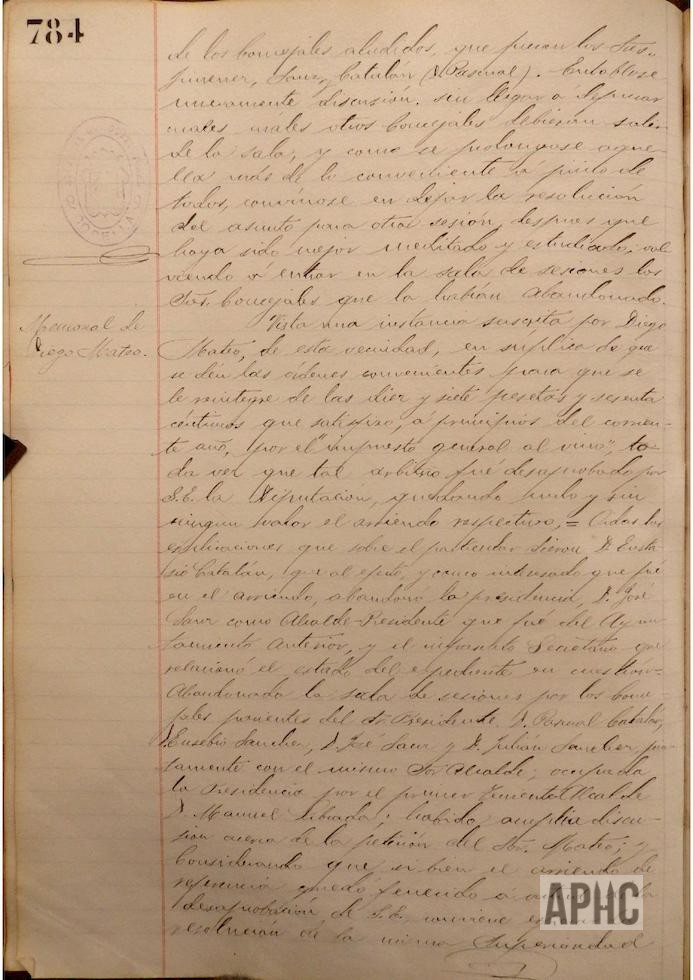 784
de los Concejales aludidos, que fueron los Sres.
Jimenez, Sanz, Catalán (D. Pascual). Entablose
nuevamente discusión, sin llegar á depurar
cuales otros Concejales debieran salir
de la sala, y como se prolongase aque-
lla más de lo conveniente á juicio de
todos, convínose en dejar la resolución
del asunto para otra sesión, despues que
haya sido mejor meditado y estudiado; vol-
viendo á entrar en la sala de sesiones los
Sres. Concejales que la habían abandonado.
Memorial de
Diego Mateo.
Vista una instancia suscrita por Diego
Mateo, de esta vecindad, en suplica de que
se dén las ordenes convenientes para que se
le reintegre de las diez y siete pesetas y sesenta
céntimos que satisfizo, á principios del corrien-
te año, por el "impuesto general al vino", to-
da vez que tal arbitrio fué desaprobado por
S.E. la Diputación, quedando nulo y sin
ningun valor el arriendo respectivo, = Oidas las
explicaciones que sobre el particular dieron D. Eusta-
sio Catalán, que al efecto, y como interesado que fué
en el arriendo, abandonó la presidencia, D. José
Sanz como Alcalde-Presidente que fué del Ayun-
tamiento anterior, y el infrascrito Secretario que
relacionó el estado del expediente en cuestion.
Abandonada la sala de sesiones por los Conce-
jales parientes del Sr. Presidente, D. Pascual Catalán,
D. Eusebio Sanchez, D. José Sanz y D. Julián Sanchez, jun-
tamente con el mismo Sor Alcalde; ocupada
la Presidencia por el primer Teniente Alcalde
D. Manuel; habida amplia discu-
sion acerca de la petición del Sor. Mateo; y
Considerando que si bien el arriendo de
referencia quedó fenecido á la
desaprobación de S.E., conviene
resolución de la misma Superioridad
APHC